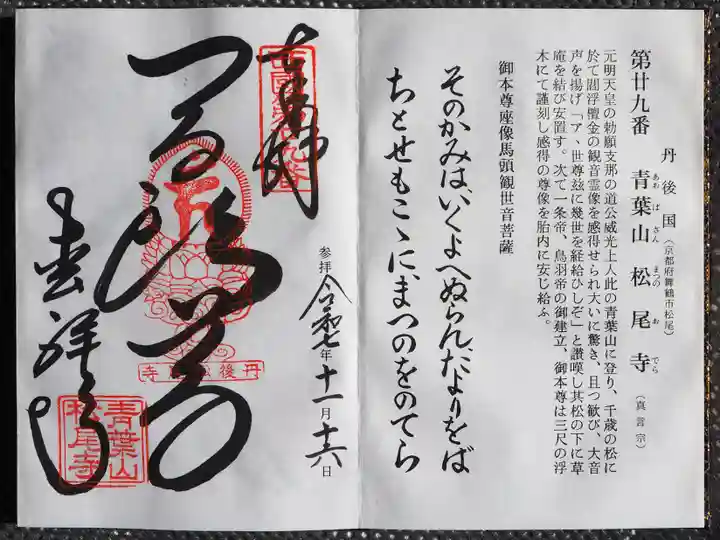 第廿九番 丹後国(京都府舞鶴市松尾)
青葉山 松尾寺(真言宗)
あおばさん まつのおでら
元明天皇の勅願支那の道公威光上人此の青葉山に登り、千歳の松に
於て閻浮檀金の観音霊像を感得せられ大いに驚き、且つ歓び、大音
声を揚げ「ア、世尊玆に幾世を経給ひしぞ」と讃嘆し其松の下に草
庵を結び安置す。次て一条帝、鳥羽帝の御建立、御本尊は三尺の浮
木にて謹刻し感得の尊像を胎内に安じ給ふ。
御本尊座像馬頭観世音菩薩
そのかみは、いくよへぬらん、たよりをば
ちとせもこゝに、まつのをのてら
参拝 令和七年十一月十六日
西國第廿九番
丹後
寺
青葉山
松尾寺